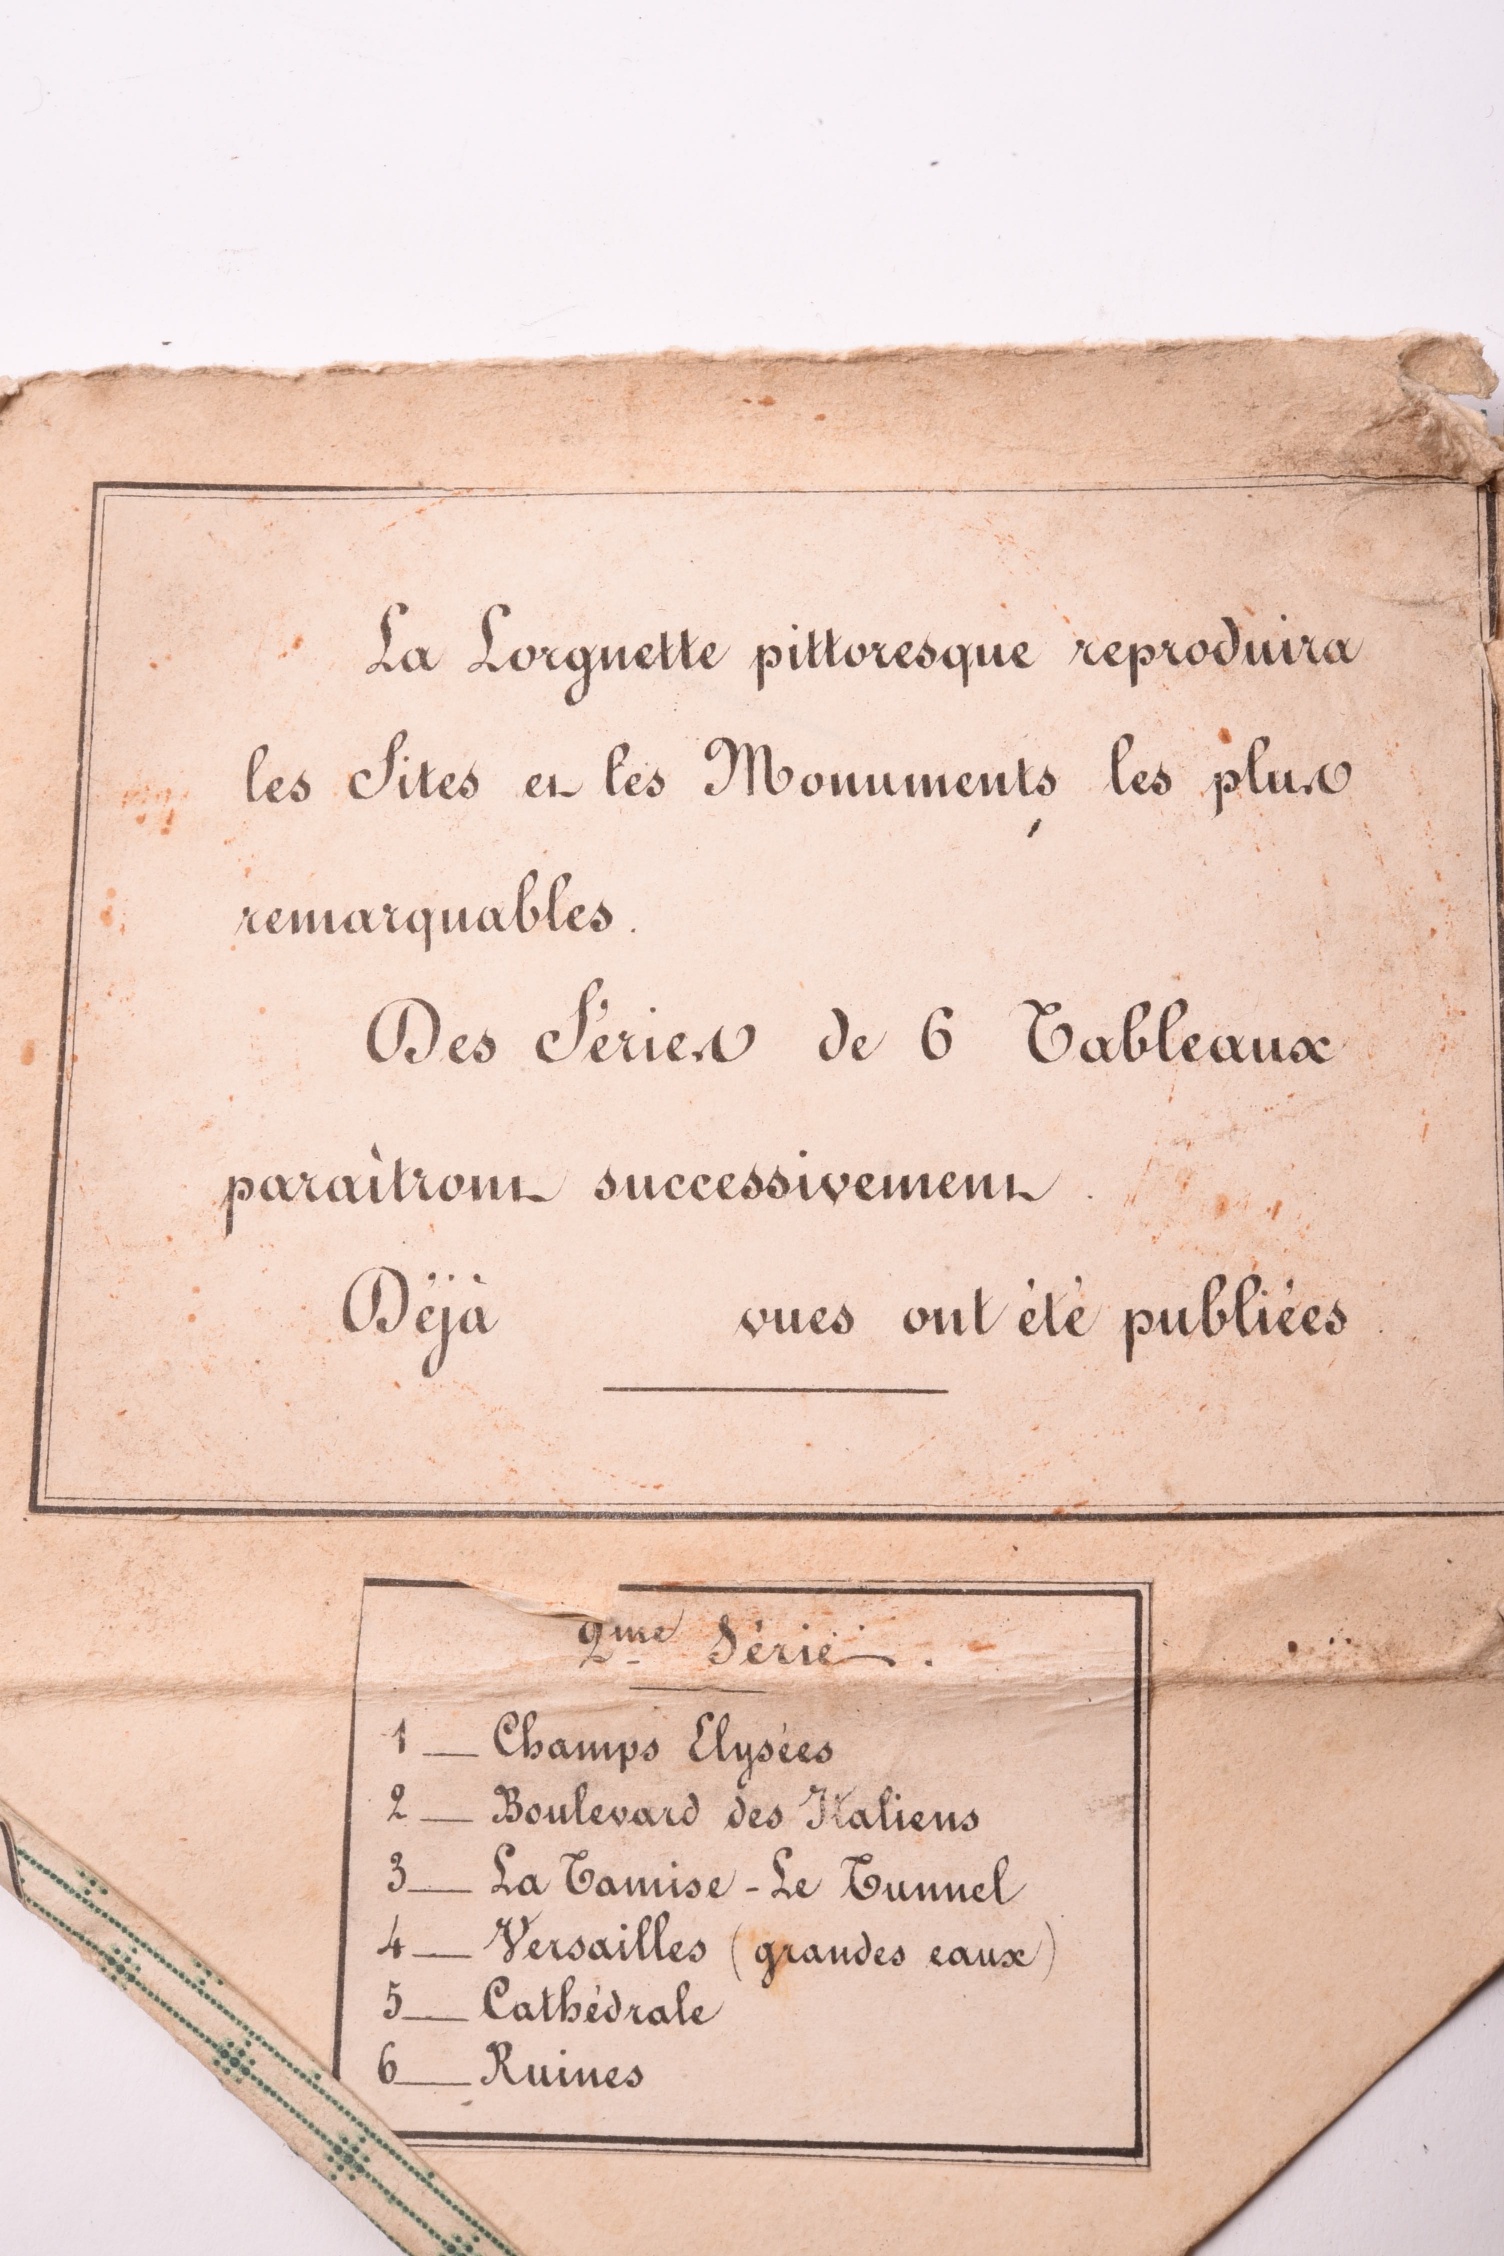 La Lorgnette pittoresque reproduira
les Sites et les Monuments les plus
remarquables.
Des Séries de 6 Tableaux
paraîtront successivement.
Déjà vues ont été publiées
2me Série.
1 — Champs Elysées
2 — Boulevard des Italiens
3 — La Tamise - Le Tunnel
4 — Versailles (grandes eaux)
5 — Cathédrale
6 — Ruines